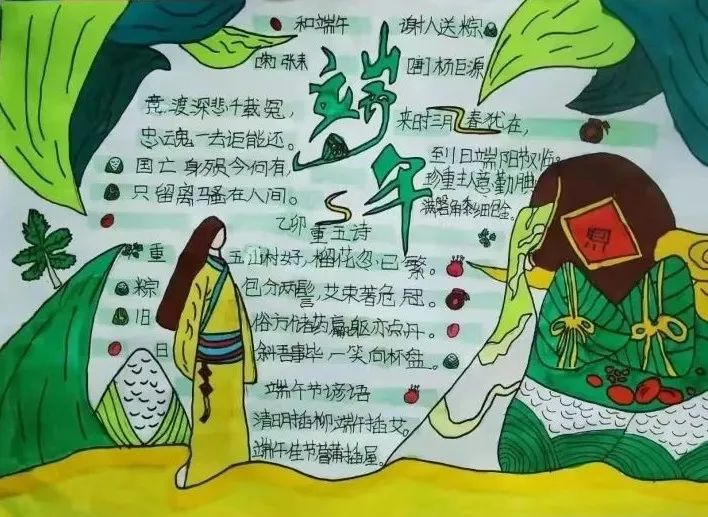 和端午
[宋]张耒
竞渡深悲千载冤,
忠魂一去讵能还。
国亡身殒今何有,
只留离骚在人间。
端午
谢人送粽
[唐]杨巨源
来时三月春犹在,
到日端阳节临。
珍重主人意勤腆,
满盘角黍细包金。
乙卯重五诗
重五山村好,榴花忽已繁。
粽包分两髻,艾束著危冠。
旧俗方储药,羸躯亦点丹。
日斜吾事毕,一笑向杯盘。
端午节谚语
清明插柳,端午插艾。
端午佳节菖蒲插屋。